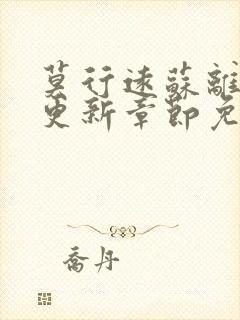 莫行遠蘇離
更新章節免
喬丹